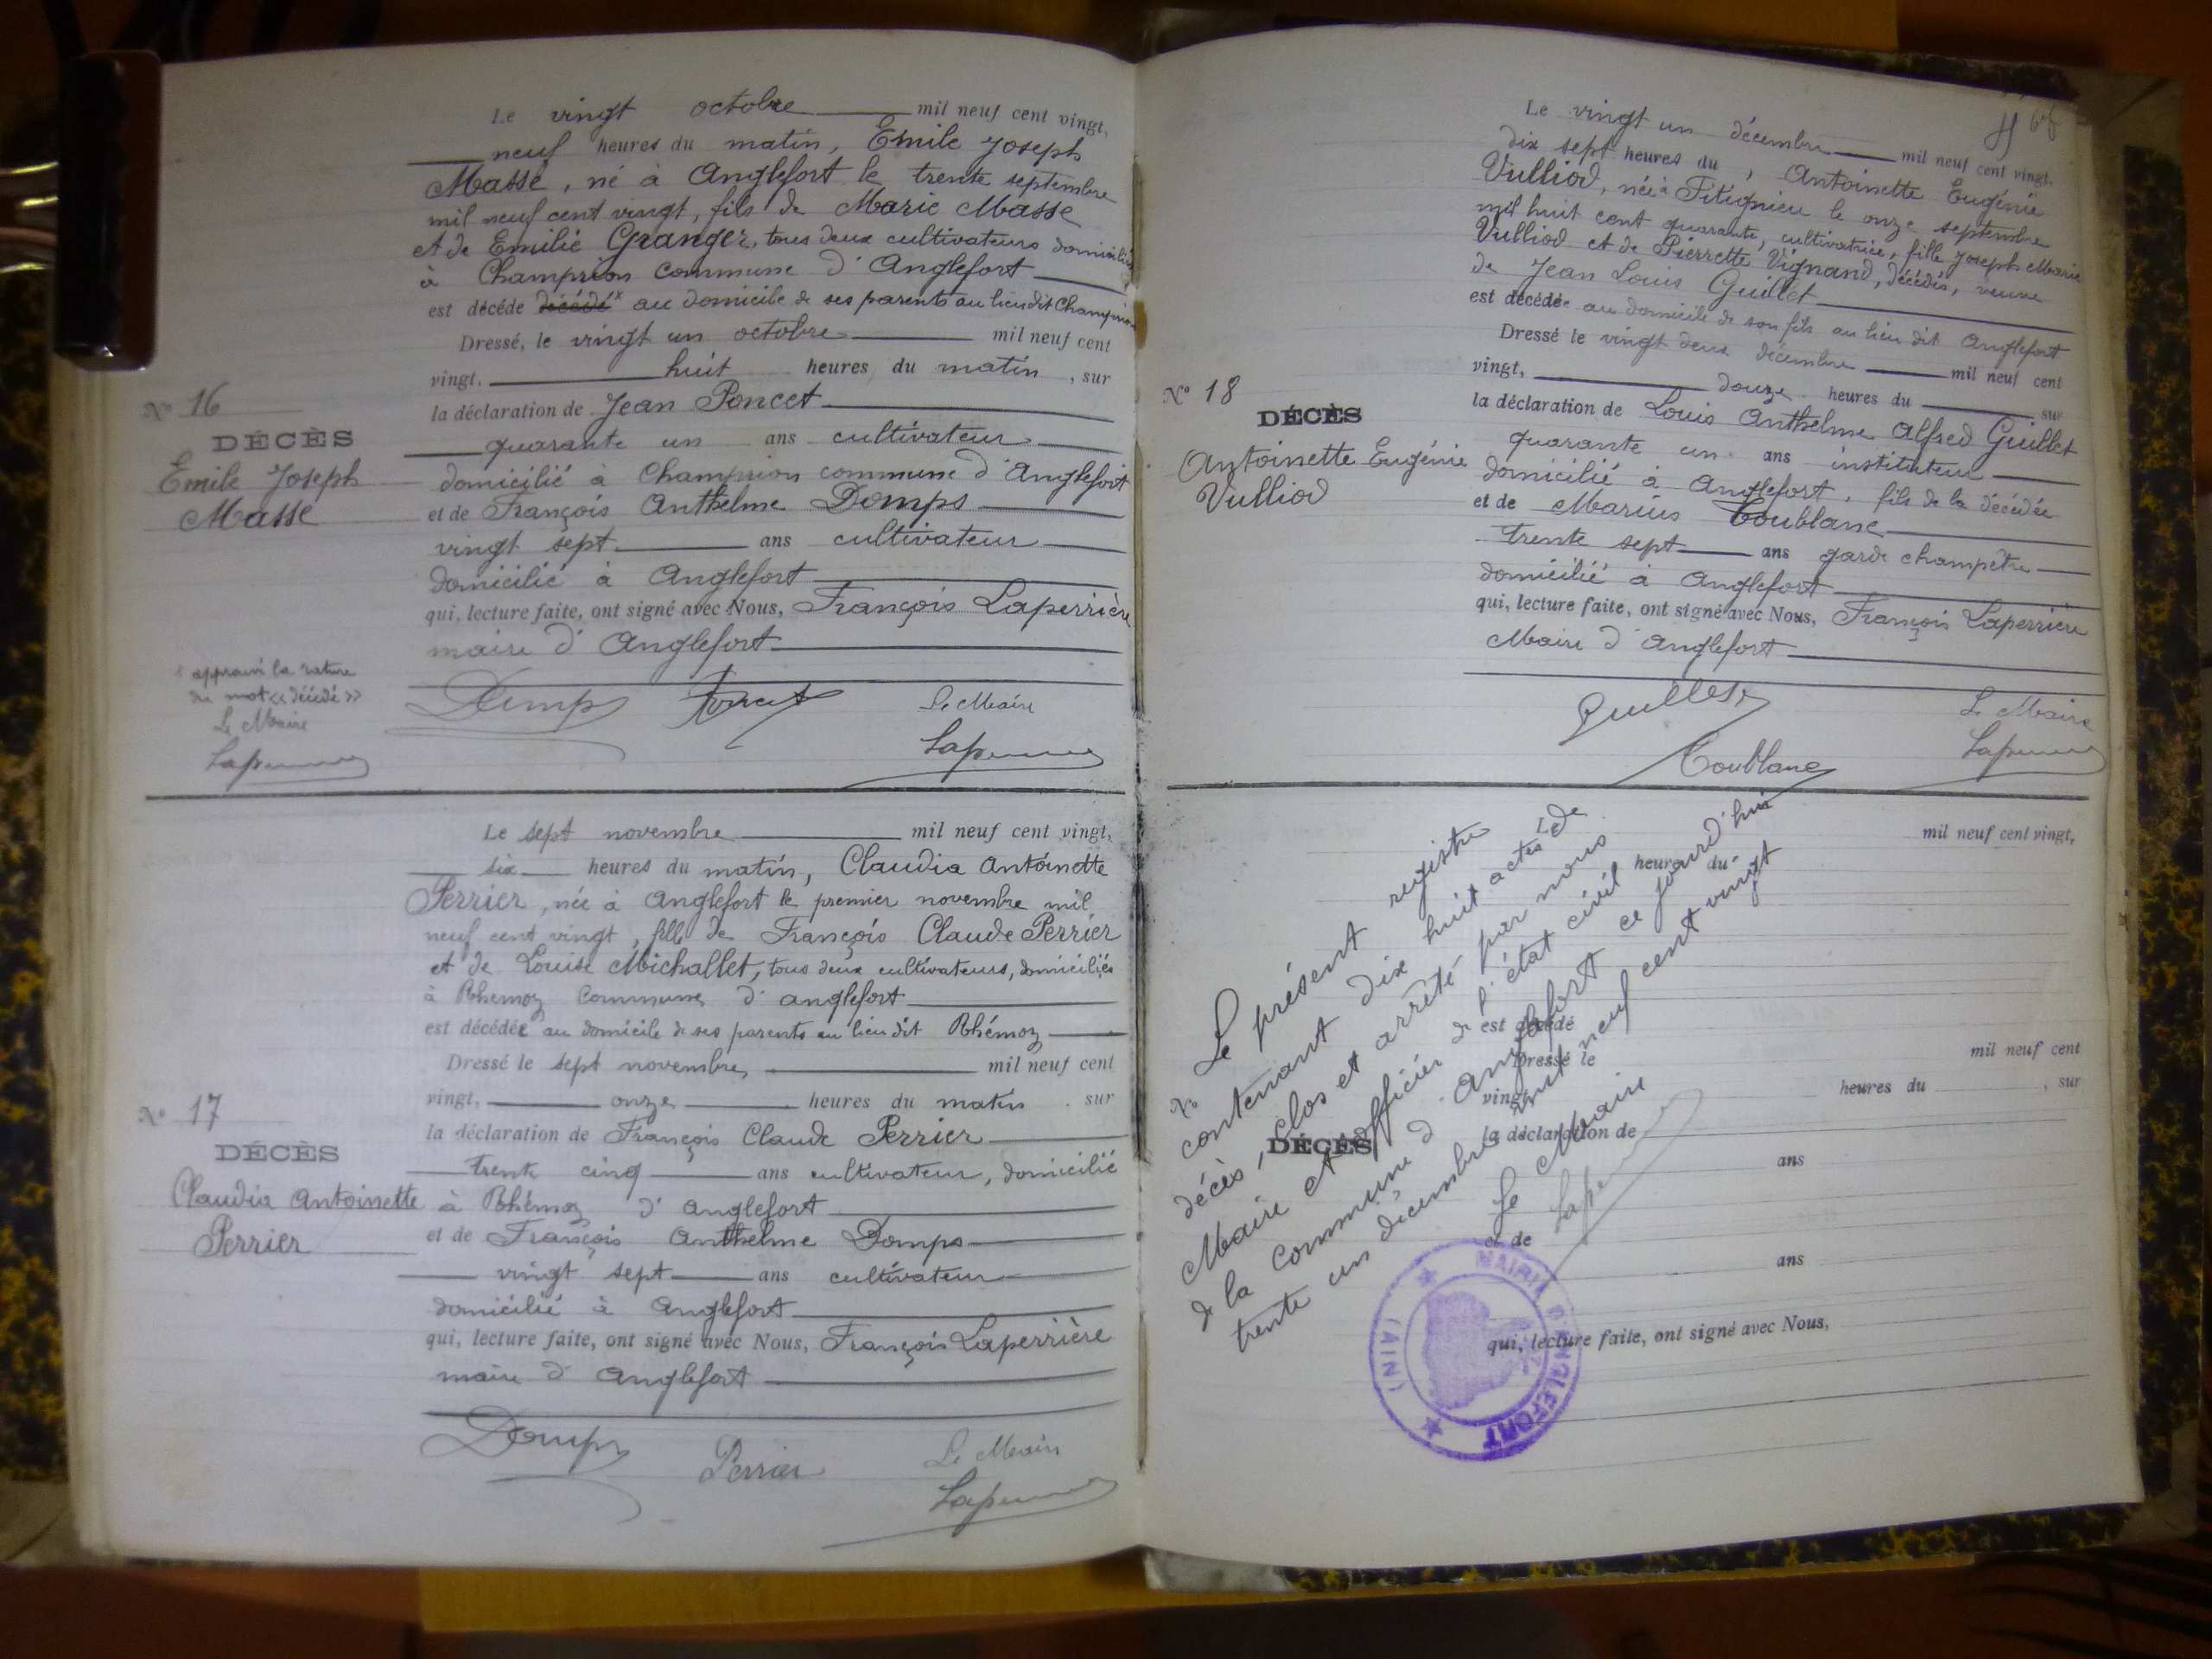 Le vingt octobre mil neuf cent vingt,
neuf heures du matin, Emile Joseph
Masse, né à Anglefort le trente septembre
mil neuf cent vingt, fils de Marie Masse
et de Emilie Granger, tous deux cultivateurs domiciliés
à Champrion commune d'Anglefort
est décédé décédé x au domicile de ses parents au lieu dit Champrion
Dressé, le vingt un octobre mil neuf cent
vingt, huit heures du matin, sur
la déclaration de Jean Poncet
quarante un ans cultivateur
domicilié à Champrion commune d'Anglefort
et de François Anthelme Domps
vingt sept ans cultivateur
domicilié à Anglefort
qui, lecture faite, ont signé avec Nous, François Laperrière
maire d'Anglefort
Domps Poncet Le Maire
Laperrière
No 16
DÉCÈS
Emile Joseph
Masse
x approuvé la rature
du mot << décédé >>
Le Maire
Laperrière
Le sept novembre mil neuf cent vingt,
six heures du matin, Claudia Antoinette
Perrier, née à Anglefort le premier novembre mil
neuf cent vingt, fille de François Claude Perrier
et de Louise Michallet, tous deux cultivateurs, domiciliés
à Rhémoz commune d'anglefort
est décédée au domicile de ses parents au lieu dit Rhémoz
Dressé le sept novembre, mil neuf cent
vingt, onze heures du matin, sur
la déclaration de François Claude Perrier
trente cinq ans cultivateur, domicilié
à Rhémoz d'anglefort
et de François Anthelme Domps
vingt sept ans cultivateur
domicilié à Anglefort
qui, lecture faite, ont signé avec Nous, François Laperrière
maire d'Anglefort
Domps Perrier Le Maire
Laperrière
No 17
DÉCÈS
Claudia Antoinette
Perrier
Le vingt un décembre mil neuf cent vingt,
dix sept heures du, Antoinette Eugénie
Vulliod, née à Fitignieu le onze septembre
mil huit cent quarante, cultivatrice, fille Joseph Marie
Vulliod et de Pierrette Vignand, décédés, veuve
de Jean Louis Guillet
est décédée au domicile de son fils au lieu dit Anglefort
Dressé le vingt deux décembre mil neuf cent
vingt, douze heures du sur
la déclaration de Louis Anthelme Alfred Guillet
quarante un ans instituteur
domicilié à Anglefort, fils de la décédée
et de Marius Toublanc
trente sept ans garde champêtre
domicilié à Anglefort
qui, lecture faite, ont signé avec Nous, François Laperrière
Maire d'Anglefort
Guillet Le Maire
Toublanc Laperrière
No 18
DÉCÈS
Antoinette Eugénie
Vulliod
Le présent registre
contenant dix huit actes de
décès, clos et arrêté par nous
Maire et officier de l'état civil
de la Commune d'Anglefort ce jourd'hui
trente un décembre mil neuf cent vingt
Le Maire
Laperrière
Le mil neuf cent vingt,
heures du
est décédé
Dressé le mil neuf cent
vingt, heures du , sur
la déclaration de
ans
et de
ans
qui, lecture faite, ont signé avec Nous,
No
DÉCÈS
MAIRIE D'ANGLEFORT
(AIN)